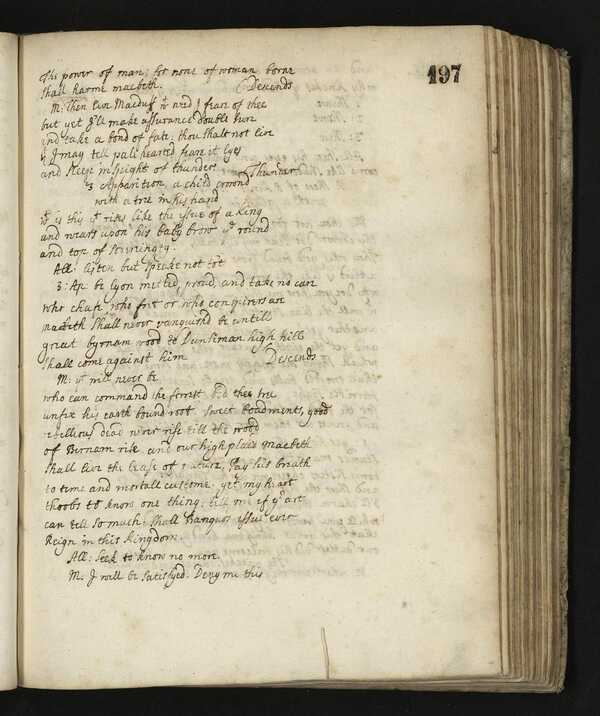 197
The power of man; for none of woman borne
Shall harme macbeth. Descends
M: Then live Macduf wt need I feare of thee
but yet I'll make assurance double sure
and take a bond of fate; thou shalt not live
yt I may tell pale hearted feare it lyes
and sleep in spight of thunder. Thunder
3 Apparition, a child crownd
with a tree in his hand
wt is this yt rises like the issue of a King
and wears upon his baby brow ye round
and top of soveraingty.
All: listen but speake not to't
3: Ap: be lyon metled, proud, and take no care
who chafe, who fret or who conspirers are
macbeth shall never vanquishd be untill
great byrnam wood to Dunsinan high hill
shall come against him Descends
M: yt will never be
who can command the forrest bid the tree
unfix his earth bound root sweet boadments, good
rebellious dead never rise till the wood
of Birnam rise and our high placed macbeth
shall live the lease of nature, Pay his breath
to time and mortall custome. yet my heart
throbs to know one thing; tell me if yr art
can tell so much shall Banquos issue ever
Reign in this Kingdom.
All: Seek to know no more
M: I will be satisfyed: Deny me this